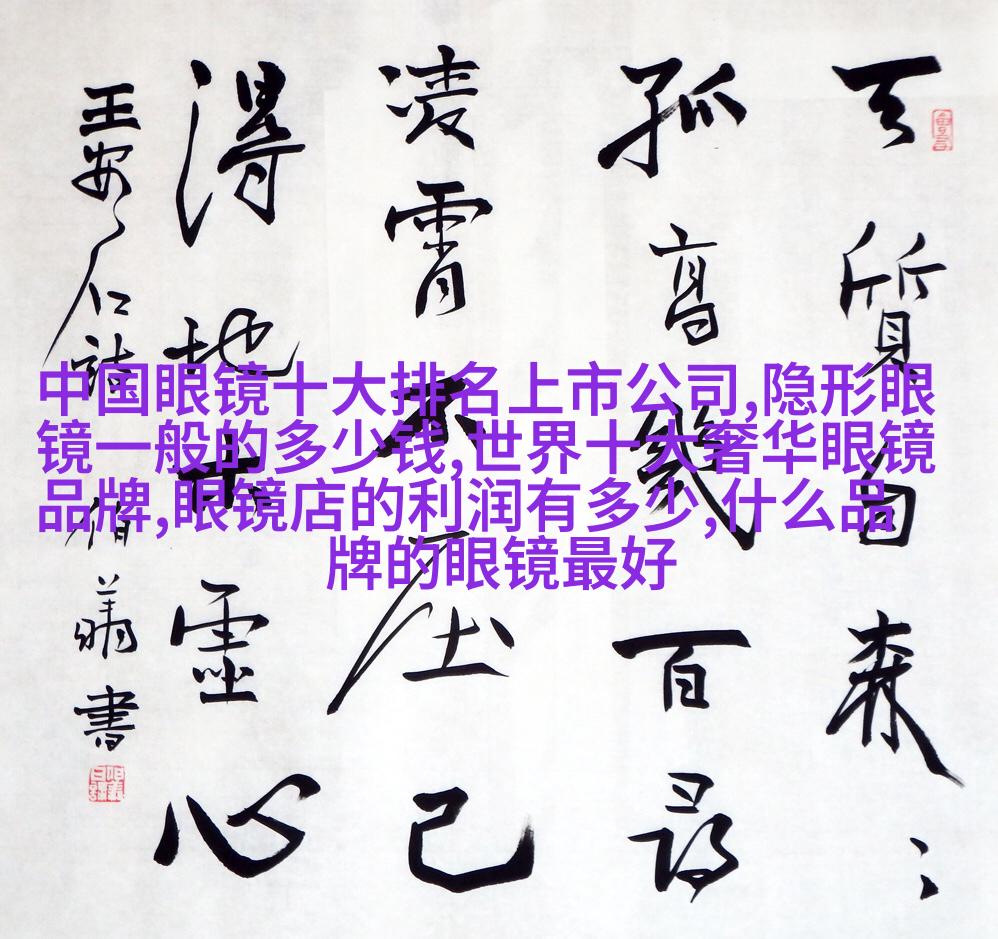 天質自森森
孤高幾百尋
凌霄不压己
得地本霊心
王安石詩
書
中国眼镜十大排名上市公司,隐形眼
镜一般的多少钱,世界十大奢华眼镜
品牌,眼镜店的利润有多少,什么品
牌的眼镜最好